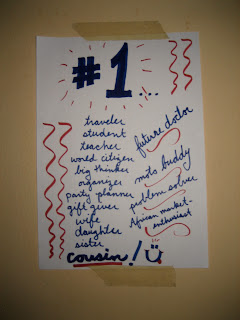 #1...
traveler
student
teacher
world citizen
big thinker
organizer
party planner
gift giver
wife
daughter
sister
cousin! Ü
future doctor
moto buddy
problem solver
African market-
enthusiast